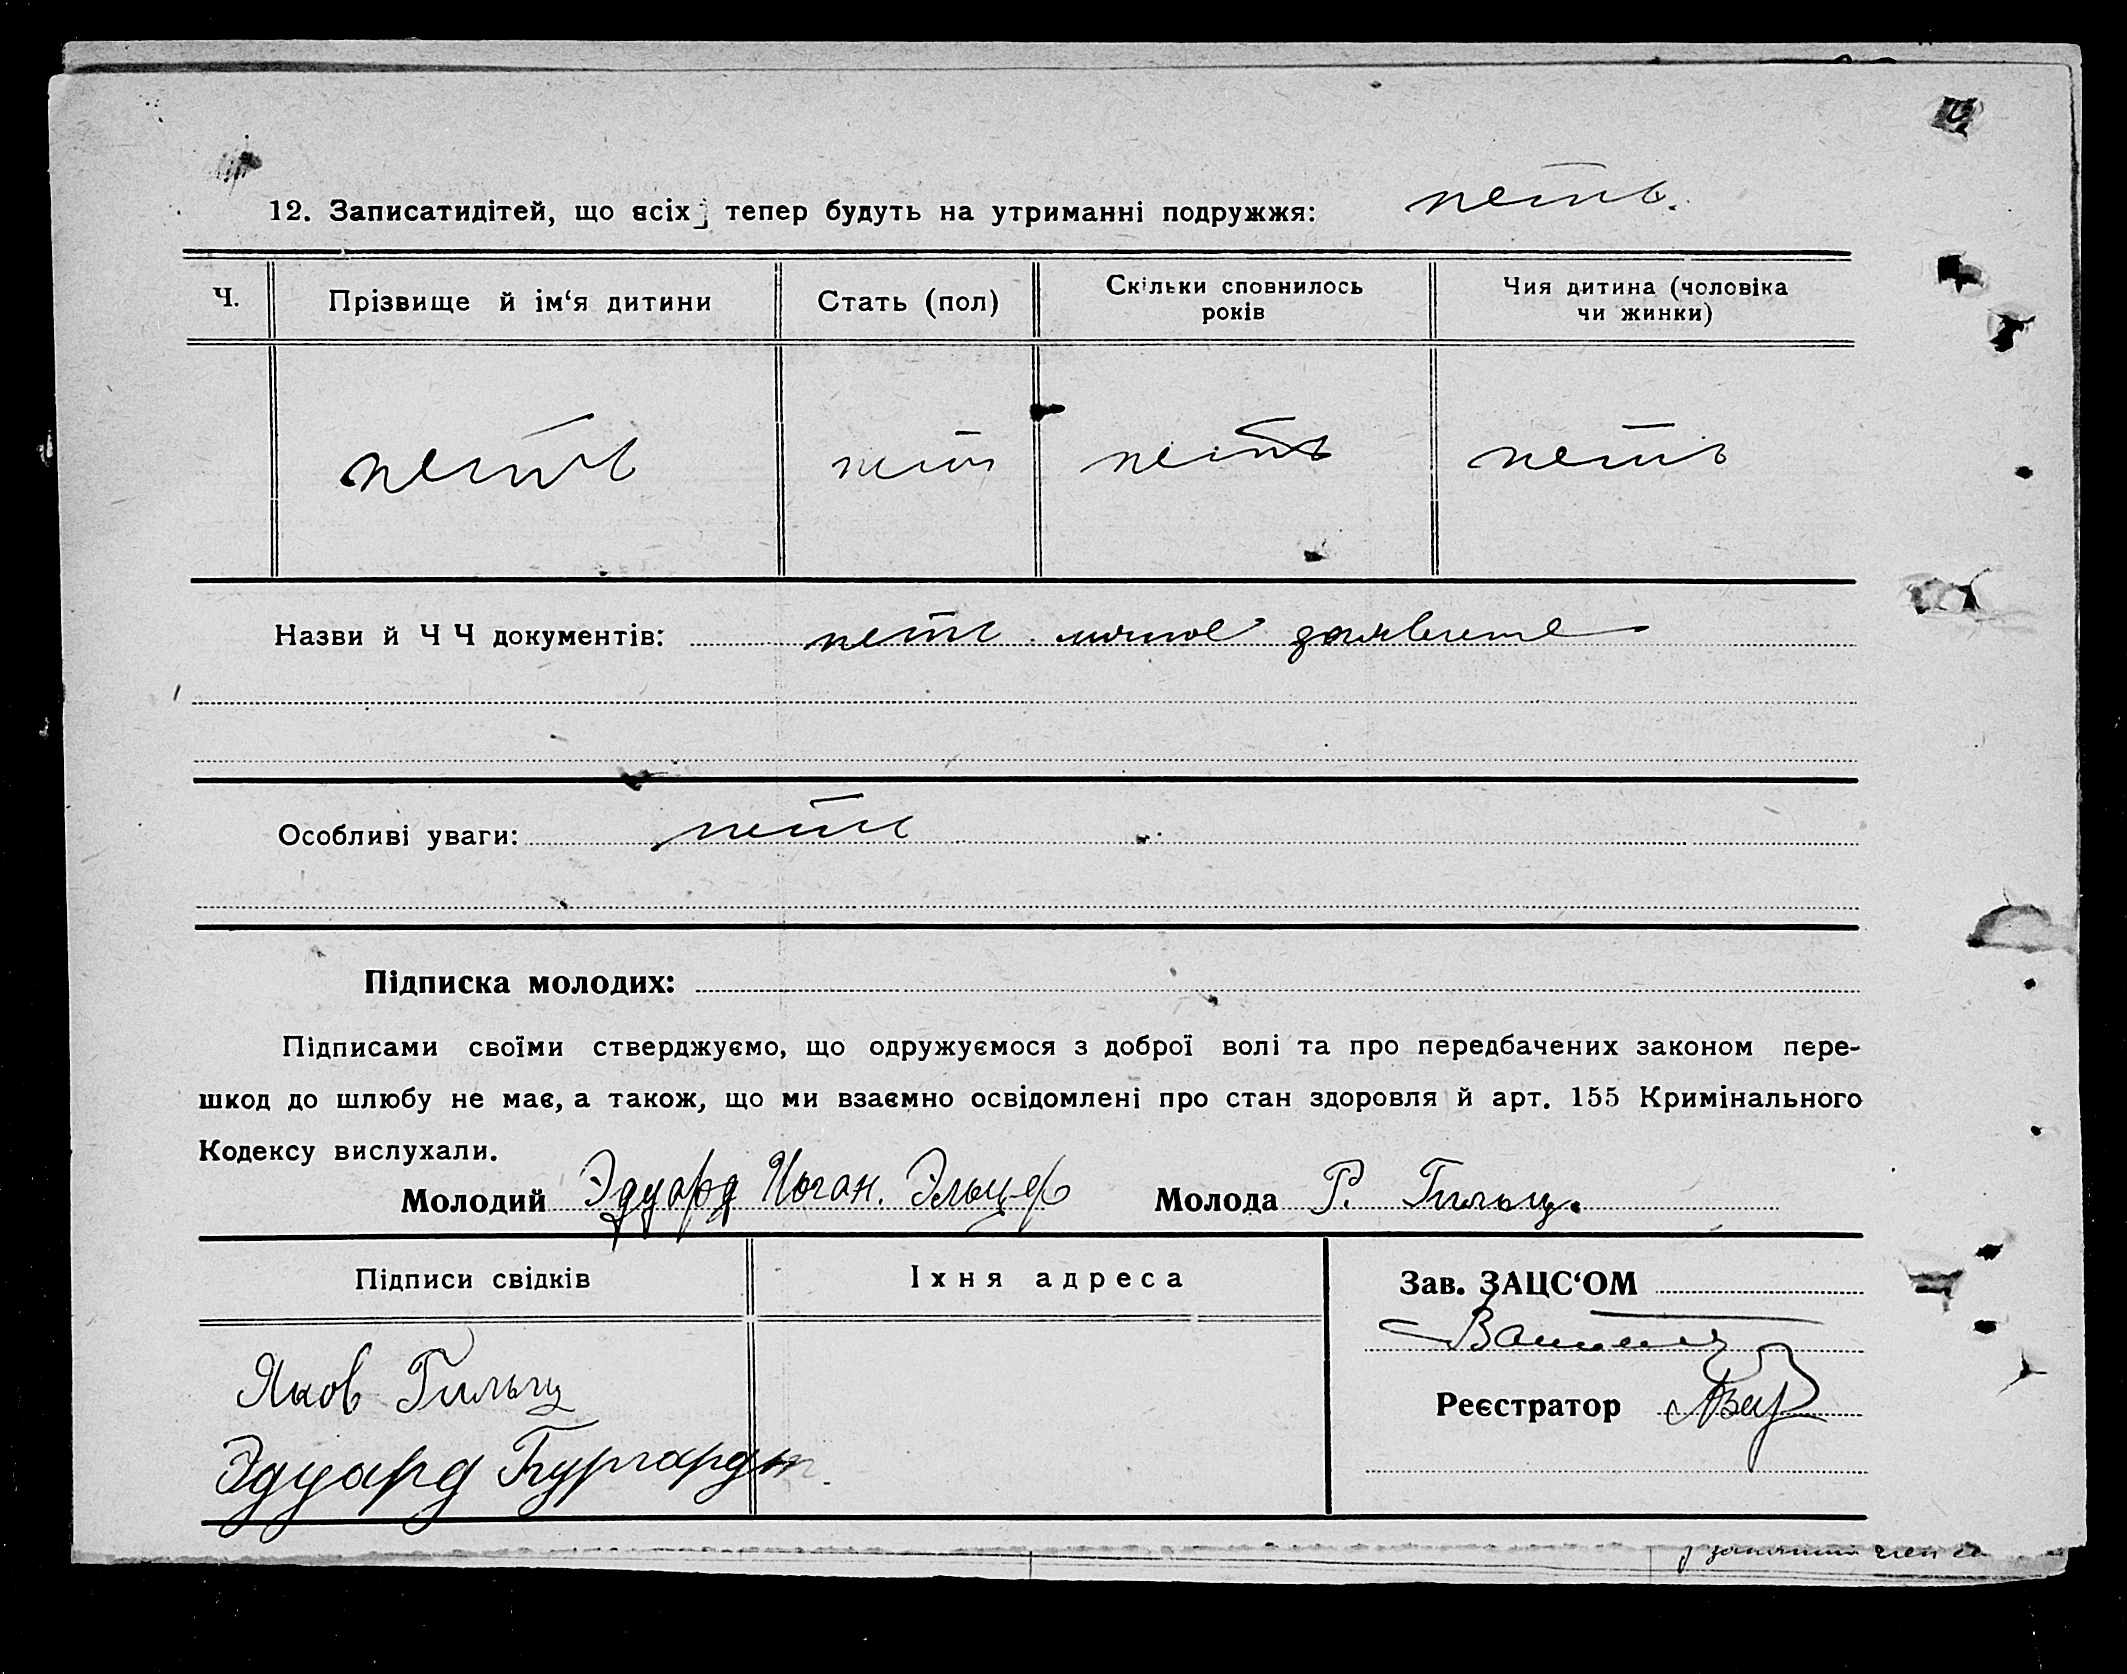 12. Записатидітей, що всіх тепер будуть на утриманні подружжя: нетъ.
Ч.
Прізвище й ім‘я дитини
Стать (пол)
Скільки сповнилось
років
Чия дитина (чоловіка
чи жинки)
нетъ нет нетъ нетъ
Назви й Ч Ч документів: нетъ личное заявление
Особливі уваги: нетъ
Підписка молодих:
Підписами своїми стверджуємо, що одружуємося з доброї волі та про передбачених законом пере-
шкод до шлюбу не має, а також, що ми взаємно освідомлені про стан здоровля й арт. 155 Кримінального
Кодексу вислухали.
Молодий Эдуард Иоган. Эльцер Молода Р. Гильц.
Підписи свідків
Їхня адреса
Зав. ЗАЦС‘ОМ
Яков Гильц
Реєстратор
Эдуард Бургардт.